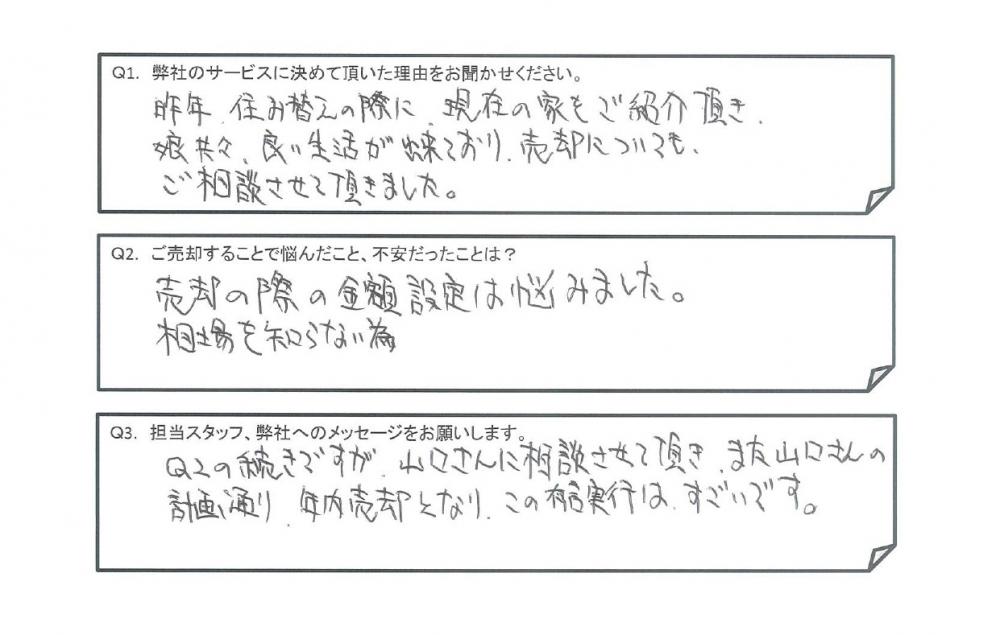 Q1. 弊社のサービスに決めて頂いた理由をお聞かせください。
昨年、住み替えの際に、現在の家をご紹介頂き、
娘共々、良い生活が出来ており、売却についても、
ご相談させて頂きました。
Q2. ご売却することで悩んだこと、不安だったことは？
売却の際の金額設定は悩みました。
相場を知らない為
Q3. 担当スタッフ、弊社へのメッセージをお願いします。
Q2の続きですが、山口さんに相談させて頂き、また山口さんの
計画通り、年内売却となり、この有言実行は、すごいです。